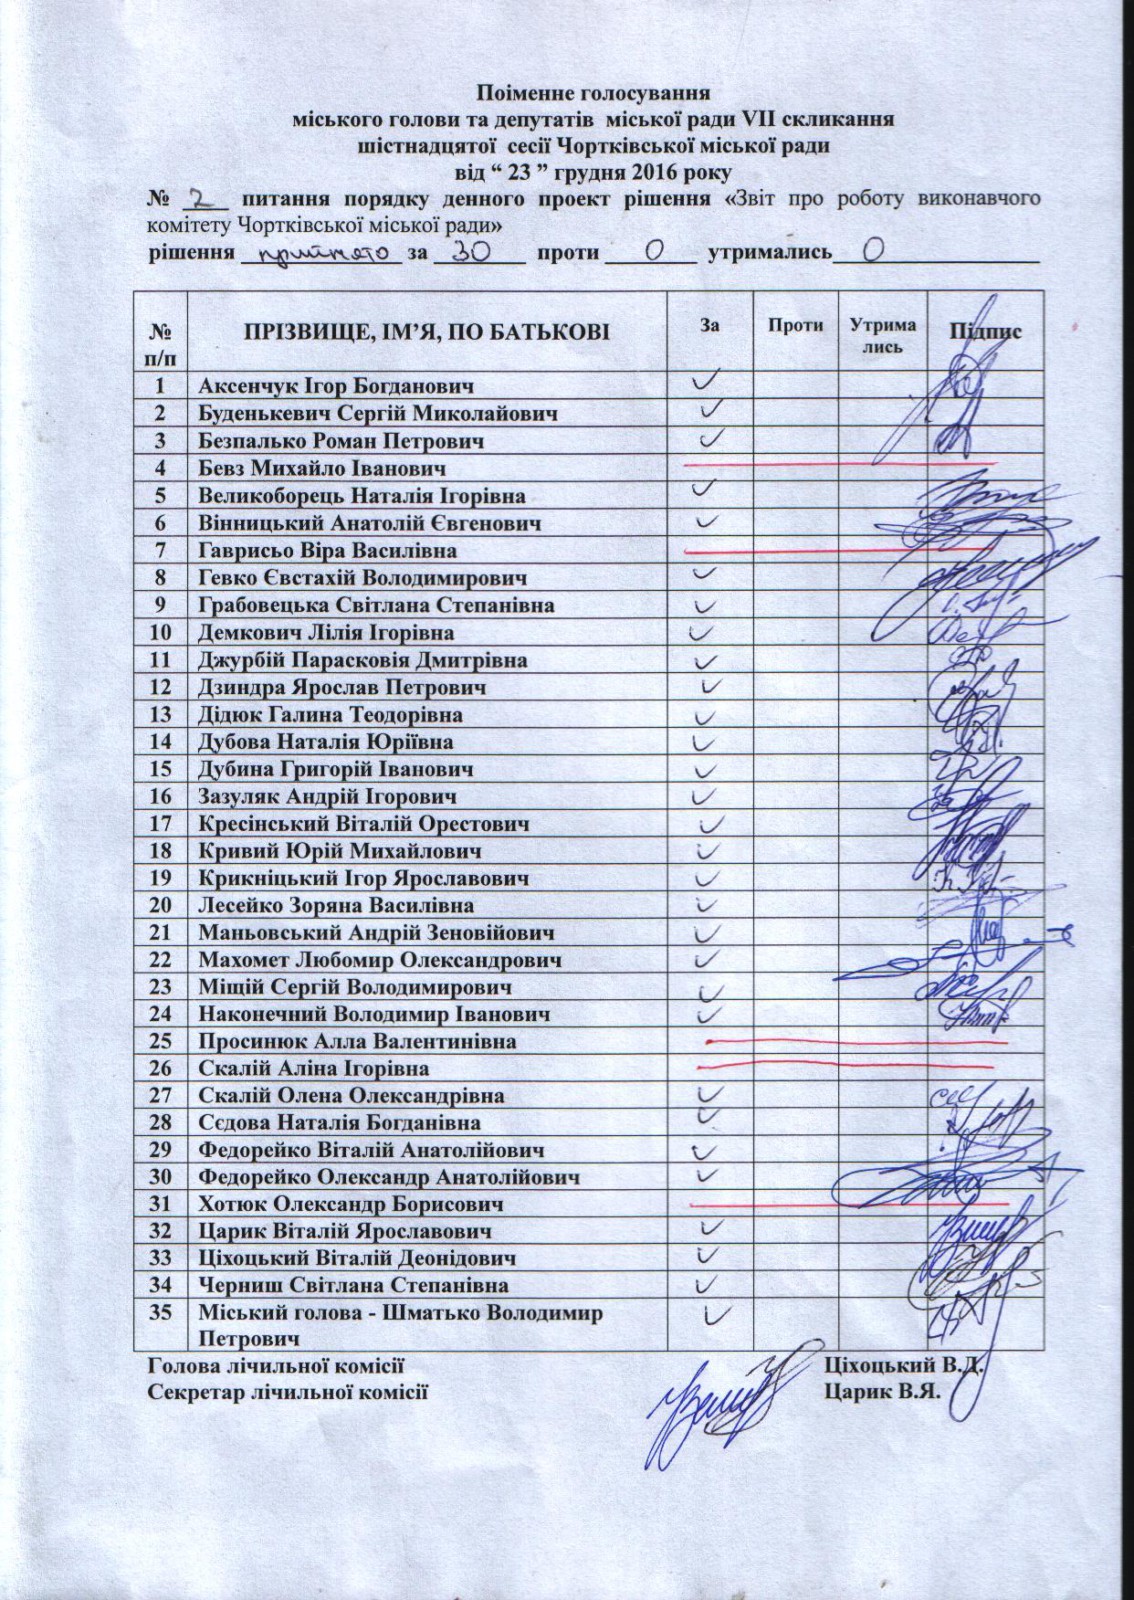 Поіменне голосування
міського голови та депутатів міської ради VII скликання
шістнадцятої сесії Чортківської міської ради
від “ 23 ” грудня 2016 року
№ 2 питання порядку денного проект рішення «Звіт про роботу виконавчого
комітету Чортківської міської ради»
рішення прийнято за 30 проти 0 утримались 0
№ п/п ПРІЗВИЩЕ, ІМ’Я, ПО БАТЬКОВІ За Проти Утрима лись Підпис
1 Аксенчук Ігор Богданович
2 Буденькевич Сергій Миколайович
3 Безпалько Роман Петрович
4 Бевз Михайло Іванович
5 Великоборець Наталія Ігорівна
6 Вінницький Анатолій Євгенович
7 Гаврисьо Віра Василівна
8 Гевко Євстахій Володимирович
9 Грабовецька Світлана Степанівна
10 Демкович Лілія Ігорівна
11 Джурбій Парасковія Дмитрівна
12 Дзиндра Ярослав Петрович
13 Дідюк Галина Теодорівна
14 Дубова Наталія Юріївна
15 Дубина Григорій Іванович
16 Зазуляк Андрій Ігорович
17 Кресінський Віталій Орестович
18 Кривий Юрій Михайлович
19 Крикніцький Ігор Ярославович
20 Лесейко Зоряна Василівна
21 Маньовський Андрій Зеновійович
22 Махомет Любомир Олександрович
23 Міщій Сергій Володимирович
24 Наконечний Володимир Іванович
25 Просинюк Алла Валентинівна
26 Скалій Аліна Ігорівна
27 Скалій Олена Олександрівна
28 Сєдова Наталія Богданівна
29 Федорейко Віталій Анатолійович
30 Федорейко Олександр Анатолійович
31 Хотюк Олександр Борисович
32 Царик Віталій Ярославович
33 Ціхоцький Віталій Деонідович
34 Черниш Світлана Степанівна
35 Міський голова - Шматько Володимир
Петрович
Голова лічильної комісії Ціхоцький В.Д.
Секретар лічильної комісії Царик В.Я.